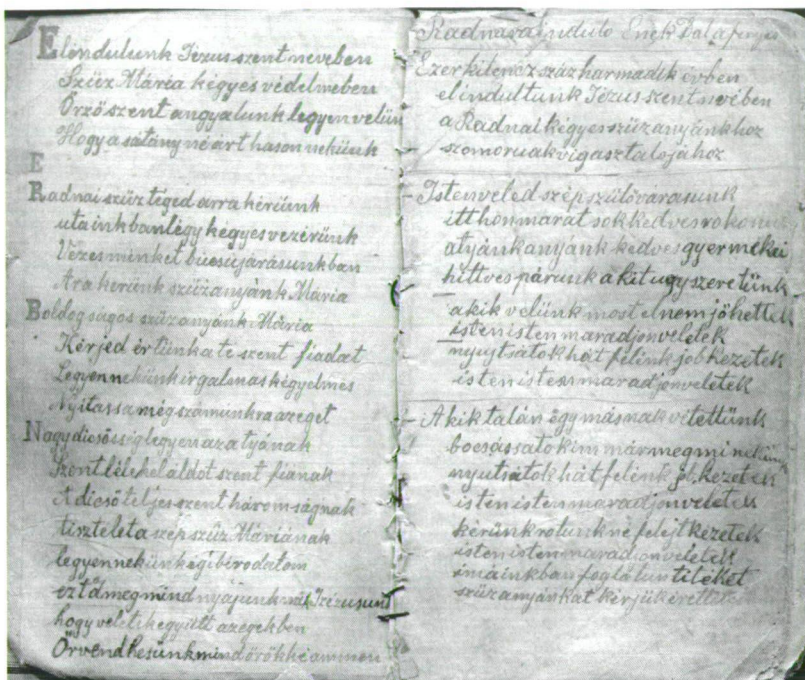 Elindulunk Jézus szent nevében
Szűz Márea kégyes védelmeben
Őrző szent angyalunk legyen velün
Hogy a sátány né árt hason nekünk
E
Radnai szűz téged arra kérünk
uta inkban légy kégyes vezérünk
Vézes minket bucsujárásunkban
Ara kérünk szűz anyánk Mária
Boldogságos szűz anyánk Mária
Kérjed értünk a te szent fiadat
Legyen nekünk irgalmas kégyelmes
Nyitassa még számunkra az eget
Nagy dicsősség legyen az a tyának
Szent léleknek áldot szent fiának
A dicső teljes szent három ságnak
tisztelet a szép szűz Máriának
legyen nekünk égi birodatom
ezt dmeg mind nyájunknak Jézusunk
hogy veletek együtt az egekben
Örvend hesünk mind örökké ammen
Radnára induló Ének Dalá
Ezerkilencz száz harmadik évben
elindultunk Jézus szent nevében
a Radnai kégyes szűz anyánkhoz
szomoruak vigasztalójához
Isten veled szép szülővárasunk
itt hon marat sok kedves rokonu
atyánk anyánk kedves gyermekei
hittves párunk a kit ugy szeretünk
akik velünk most el nem jöhettek
isten isten maradjon veletek
nyujtsátok hát félink job kezetek
isten isten maradjon veletek
A kik talán égy másnak vétettünk
bocsássatok im már meg mi nekünk
nyutsátok hát felénk jb. kezetek
isten isten maradjon veletek
kérünk rolunk né felejt kézetek
isten isten maradjon veletek
imáinkban foglatun titeket
szűz anyánkat kérjük érettek